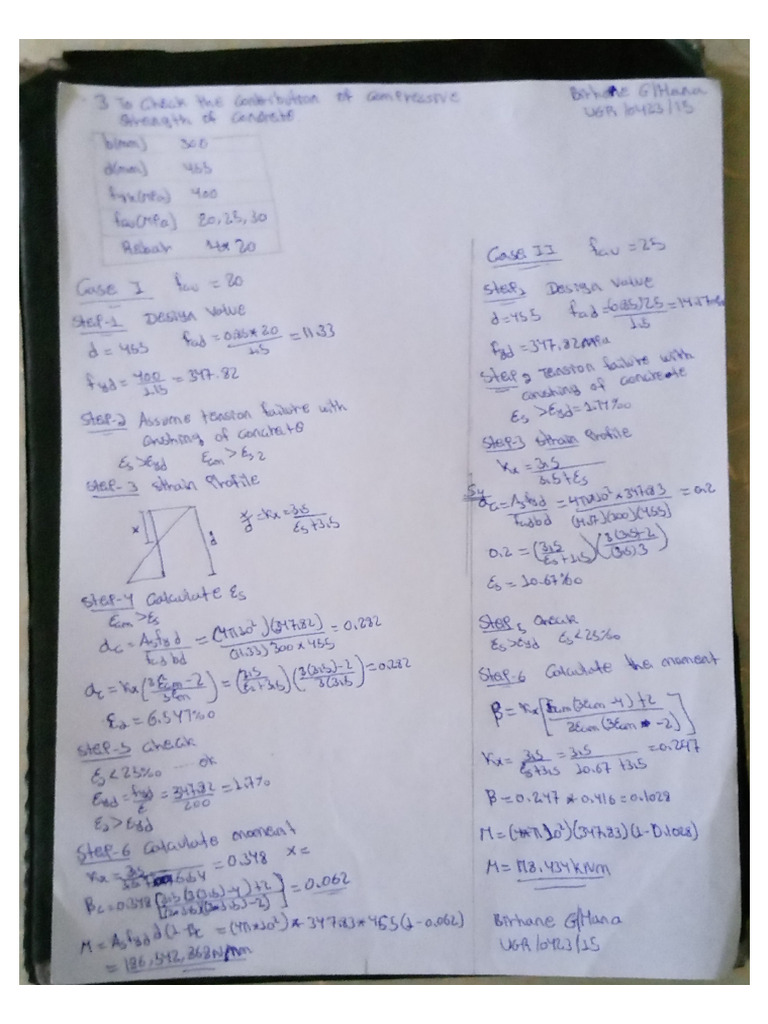 3 To Check the Contribution of compressive
strength of concrete
Birhane G/Hana
UGR/0423/15
b(mm) 300
d(mm) 455
fyk(MPa) 400
fcu(MPa) 20,25,30
Rebar 4φ20
Case I fcu = 20
Step-1 Design Value
d = 455 fcd = 0.85*20/1.5 = 11.33
fyd = 400/1.15 = 347.82
Step-2 Assume tension failure with
crushing of concrete
εs>εyd εcm>εs2
Step-3 strain profile
x d x/d = Kx = 3.5/(εs+3.5)
Step-4 Calculate εs
εcm>εs
αc = Asfyd/fcdbd = (4π10²)(347.82)/(11.33)300×455 = 0.282
αc = Kx(3εcm-2/3εm) = (3.5/εs+3.5)(3(3.5)-2/3(3.5)) = 0.282
εs = 6.547‰
Step-5 check
εs<25‰ ... ok
εyd = fyd/E = 347.82/200 = 1.7‰
εs>εyd
Step-6 Calculate moment
Kx = 3.5/3.5+6.54 = 0.348 x=
βc=0.348[3.5(3(3.5)-4)+2/(2*3.5)(3*3.5)-2)] = 0.062
M = Asfyd d(1-βc = (4π×10²)*347.83*455(1-0.062)
= 186,542,368N/mm
Case II fcu = 25
Step1 Design Value
d=455 fcd = 0.85×25/1.5 = 14.17MPa
fyd = 347.82MPa
Step 2 Tension failure with
crushing of concrete
εs >εyd = 1.74‰
Step-3 strain Profile
Kx = 3.5/3.5+εs
S4 αc = Asfyd/fcdbd = 4π×10²×347.83/(14.17)(300)(455) = 0.2
0.2 = (3.5/εs+3.5)(3(3.5)-2/(3.5)3)
εs = 10.67‰
Step 5 Check
εs>εyd εs<25‰
Step-6 Calculate the moment
β = Kx[εcm(3εcm-4)+2/2εcm(3εcm-2)]
Kx = 3.5/εs+3.5 = 3.5/10.67+3.5 = 0.247
β = 0.247*0.416=0.1028
M = (4π10²)(347.83)(1-0.1028)
M = 178.434kNm
Birhane G/Hana
UGR/0423/15